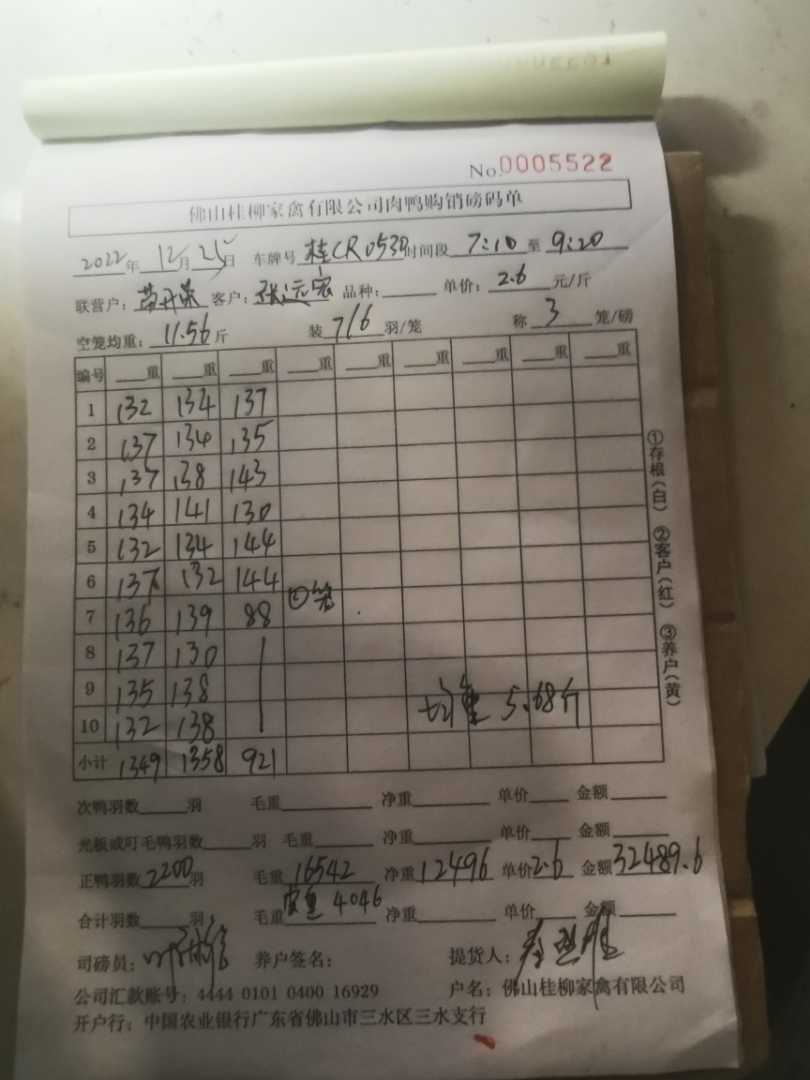 No.0005522
佛山桂柳家禽有限公司肉鸭购销磅码单
2022年 12月 25日 车牌号 桂CR0530 时间段 7:10 至 9:20
联营户: 客户:张远宏 品种: 单价:2.6 元/斤
空笼均重: 11.56 斤 装 7/6 羽/笼 称 3 笼/磅
编号 重 重 重 重 重 重 重 重 重
1 132 134 137
2 137 134 135
3 137 138 143
4 134 141 130
5 132 134 144
6 137 132 144
7 136 139 88 ②笼
8 137 130
9 135 138 均重 5.68斤
10 132 138
小计 1349 1358 921
①存根(白) ②客户(红) ③养户(黄)
次鸭羽数 羽 毛重 净重 单价 金额
光板或叮毛鸭羽数 羽 毛重 净重 单价 金额
正鸭羽数 2200 羽 毛重 16542 净重 12496 单价 2.6 金额 32489.6
合计羽数 羽 毛重 皮重 4046 净重 单价 金额
司磅员: 养户签名: 提货人:
公司汇款账号:4444 0101 0400 16929 户名:佛山桂柳家禽有限公司
开户行:中国农业银行广东省佛山市三水区三水支行